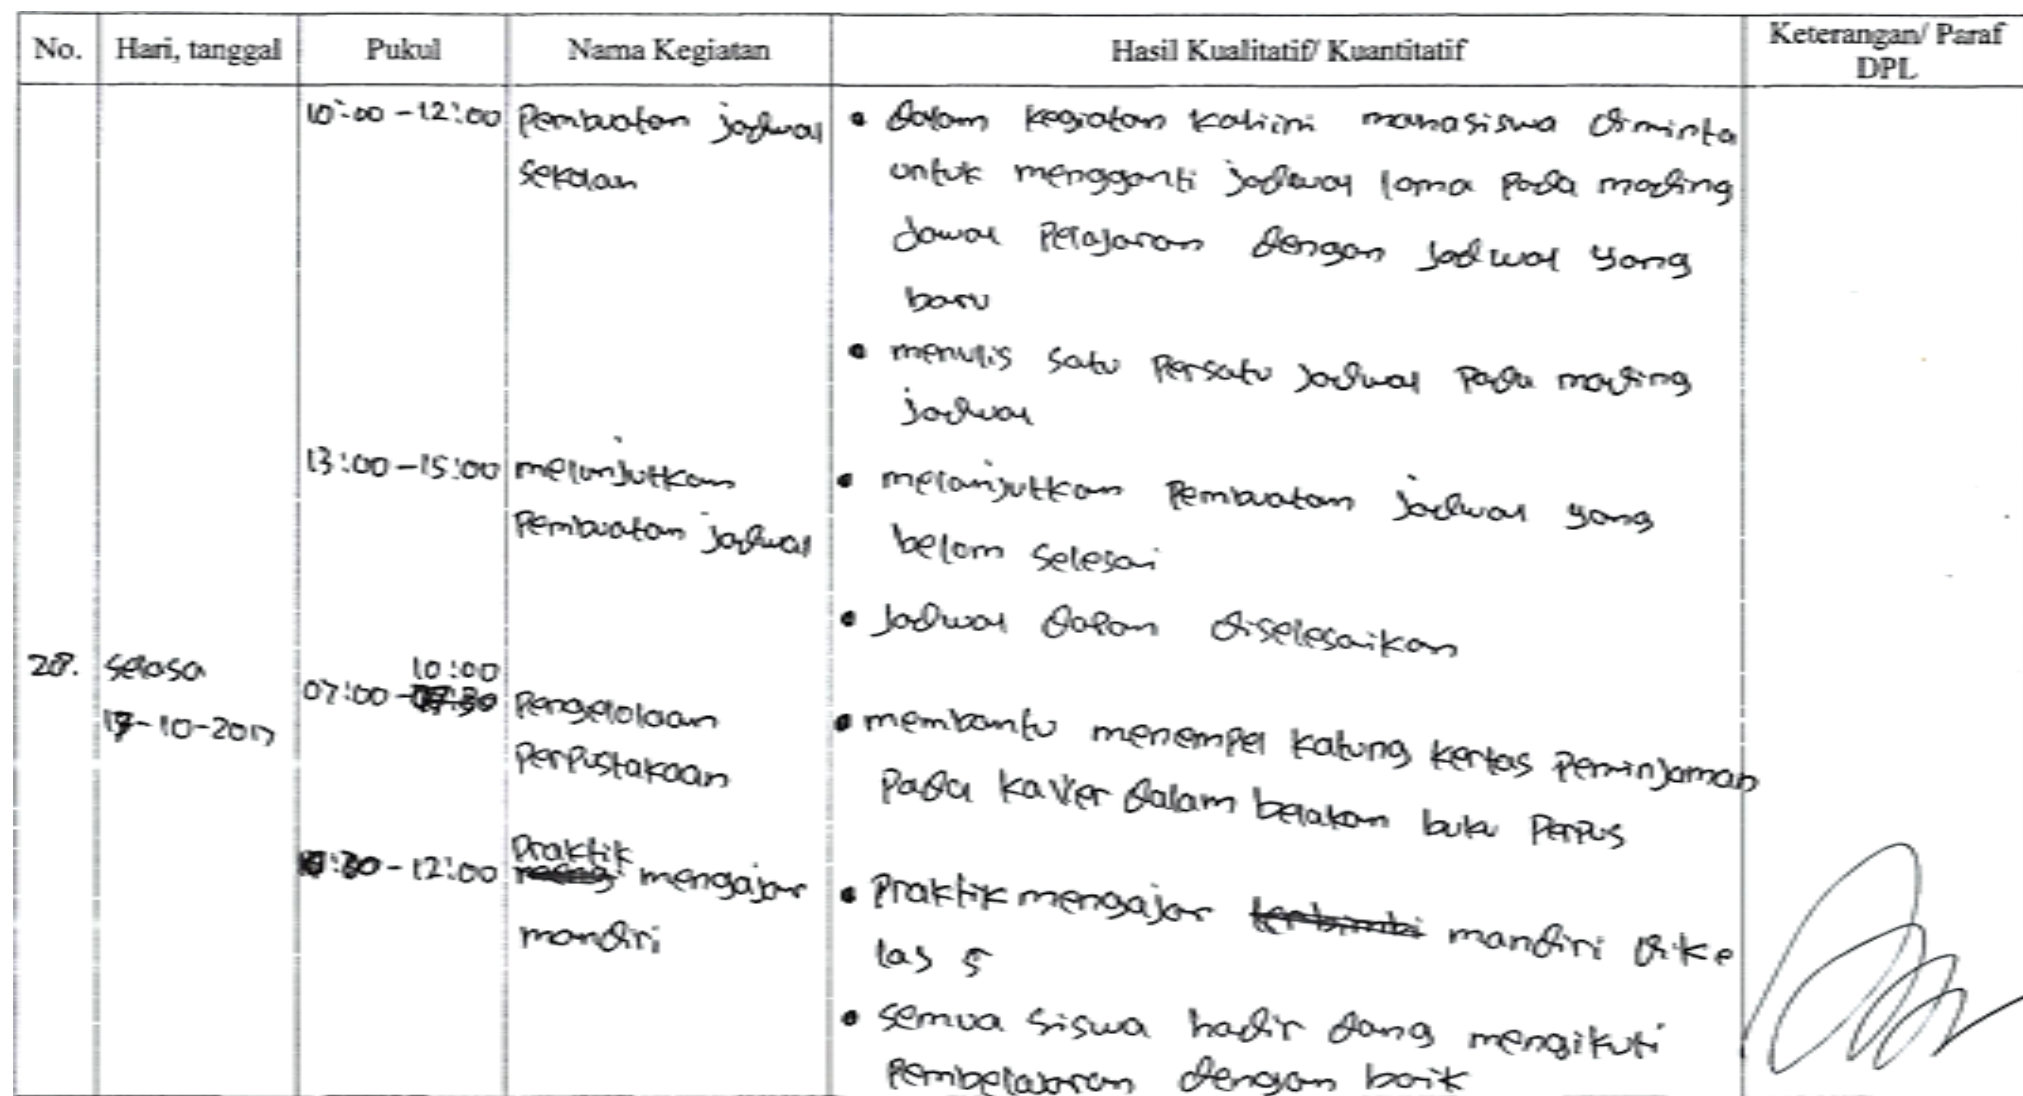 No. Hari, tanggal Pukul Nama Kegiatan Hasil Kualitatif/ Kuantitatif Keterangan/ Paraf DPL
10:00 -12:00 Pembuatan jadwal • dalam kegiatan kaliini mahasiswa diminta
sekolah untuk mengganti jadwal lama pada mading
jawal pelajaran dengan jadwal yang
baru
• menulis satu persatu jadwal pada mading
jadwal
13:00 -15:00 melanjutkan • melanjutkan pembuatan jadwal yang
pembuatan jadwal belom selesai
• Jadwal dapan diselesaikan
28. selasa 10:00
07:00 - Pengelolaan
-10-2017 perpustakaan • membantu menempel katung kertas peminjaman
pada kaver dalam belakan buku perpus
Praktik
-12:00 mengajar • praktik mengajar mandiri dike
mandiri las 5
• semua siswa hadir dang mengikuti
pembelajaran dengan baik